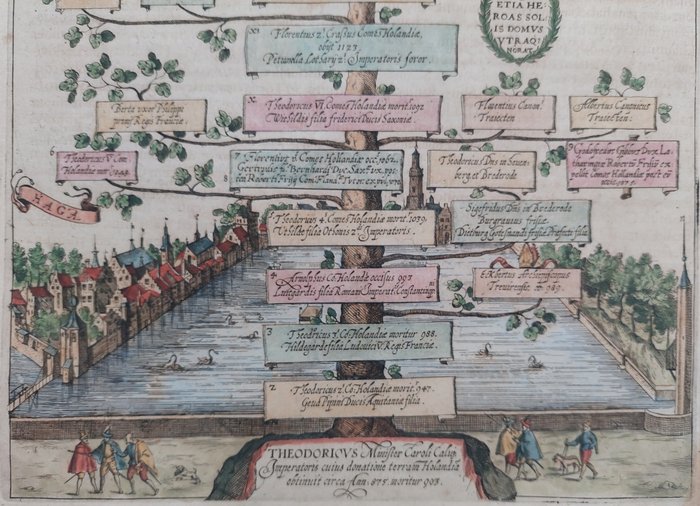 ETIA HE
ROAS SOL
IS DOMVS
VTRAQ;
NORAT.
XI Florentius 2. Crassus Comes Holandiæ,
obijt 1123.
Petronilla Lotharij 2. Imperatoris soror.
Berta uxor Philippi
primi Regis Franciæ
X Theodoricus VI Comes Holandiæ morit. 1092
Withildis filia friderici Ducis Saxoniæ.
Florentius Canon.
Traiecten
Albertus Canonicus
Traiecten:
6 Theodoricus V Com
Holandiæ
7 Florentius Comes Hollandiæ occ. 1062.
Gertrudis Bernhardi Duc. Sax. f. ux.
Theodoricus Dns in
berg. et Brederode
9 Godefridus Gibbosus Dux Lo-
tharingiæ Roberto Frisio ex
pulso Comes Hollandiæ
HAGA.
Theodoricus 4. Comes Holandiæ morit. 1039.
Uthilde filia Othonis 2. Imperatoris.
Sigfridus Dns in Brederode
Burgrauius frisiæ.
filia
4 Arnolphus Co. Holandiæ occisus 993
Luitgardis filia Romani Imperat. Constantinop.
Ekbertus Archiepiscopus
Treuirensis 989.
3 Theodricus Co. Holandiæ moritur 988.
Hildegarde filia Ludouici Regis Franciæ.
2 Theodoricus 2. Co. Holandiæ morit. 947.
Geua Pipini Ducis Aquitaniæ filia.
THEODORICVS Minister Caroli Calui
Imperatoris cuius donatione terram Holandiæ
obtinuit circa Ann. 875. moritur 903.